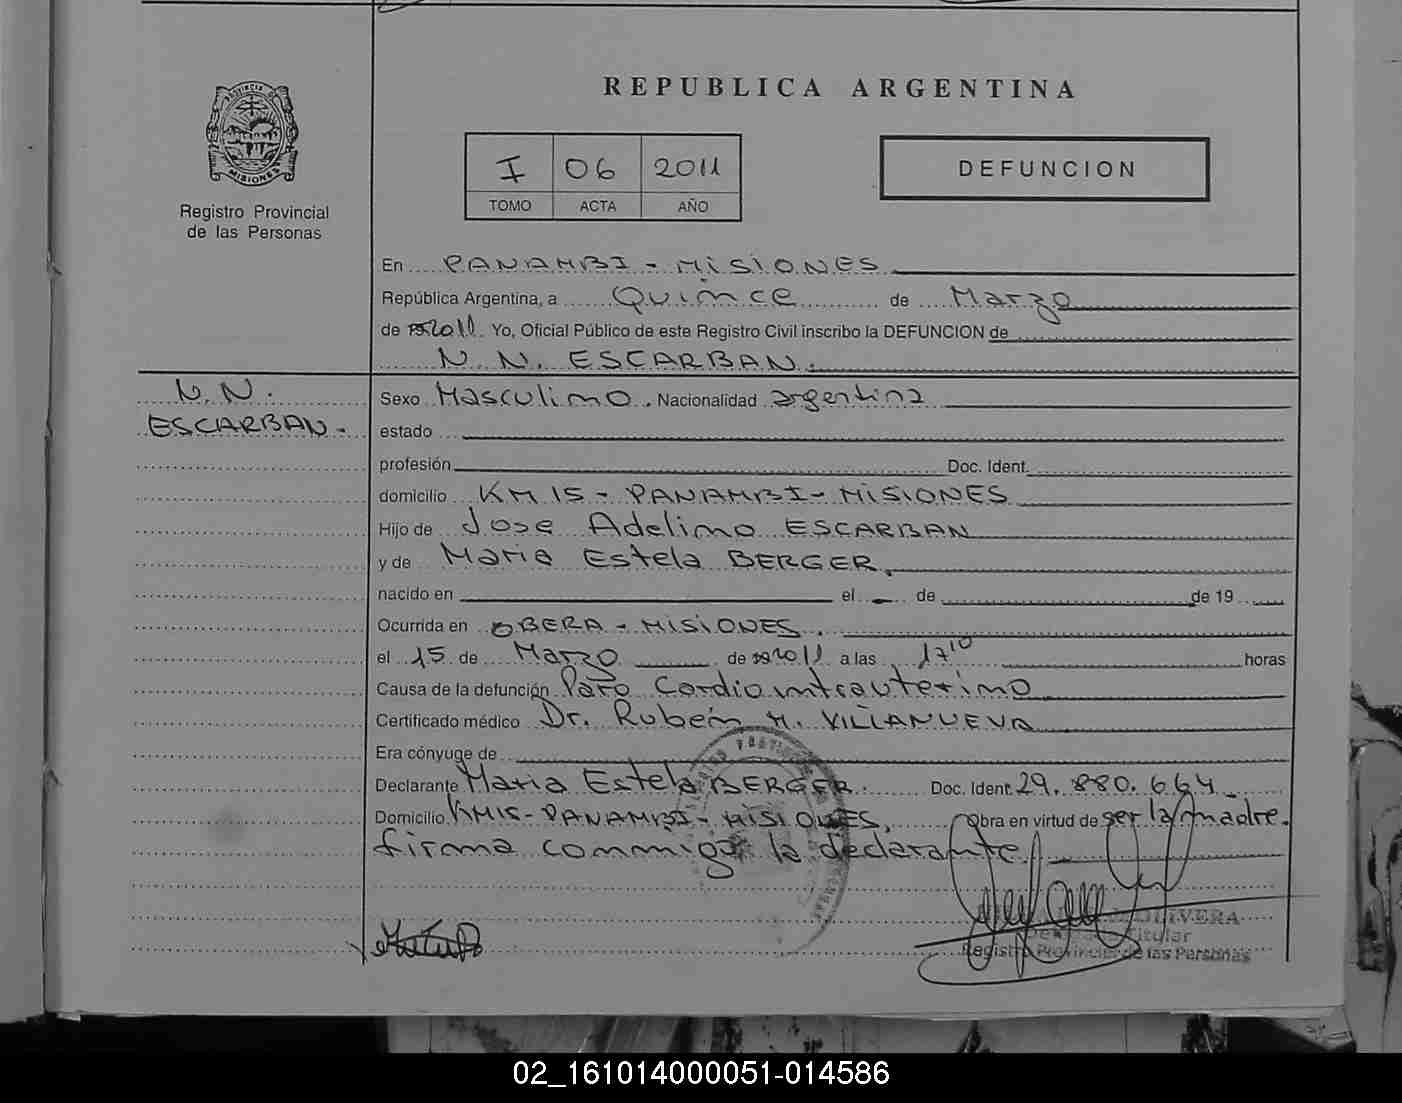 REPUBLICA ARGENTINA
PROVINCIA DE
MISIONES
Registro Provincial
de las Personas
I 06 2011
TOMO ACTA AÑO
DEFUNCION
En PANAMBI - MISIONES
República Argentina, a Quince de Marzo
de 2011 Yo, Oficial Público de este Registro Civil inscribo la DEFUNCION de
N. N. ESCARBAN.
N. N.
ESCARBAN -
Sexo Masculino. Nacionalidad argentina
estado
profesión Doc. Ident.
domicilio KM 15 - PANAMBI - MISIONES
Hijo de Jose Adelino ESCARBAN
y de Maria Estela BERGER.
nacido en el - de de 19
Ocurrida en OBERA - MISIONES.
el 15 de Marzo de 2011 a las 17 10 horas
Causa de la defunción Paro Cardio intrauterino
Certificado médico Dr. Ruben H. VILLANUEVA
Era cónyuge de
Declarante Maria Estela BERGER. Doc. Ident. 29.880.664.
Domicilio KM15 - PANAMBI - MISIONES. Obra en virtud de ser la madre.
firma conmigo la declarante
OLIVERA
Titular
Registro Provincial de las Personas
02_161014000051-014586